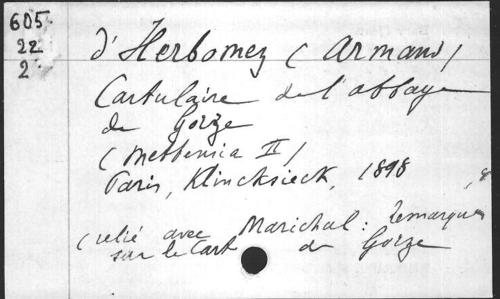 605
22
2
d'Herbomez (Armand)
Cartulaire de l'abbaye
de Gorze
(Mettensia II)
Paris, Klincksieck, 1898, 8°
(relié avec Marichal: Remarques
sur le Cart de Gorze